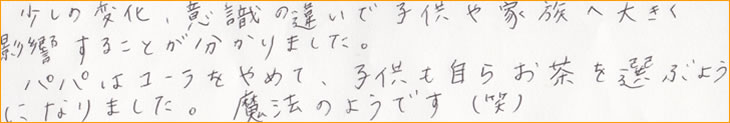 少しの変化、意識の違いで子供や家族へ大きく
影響することが分かりました。
パパはコーラをやめて、子供も自らお茶を選ぶよう
になりました。魔法のようです(笑)